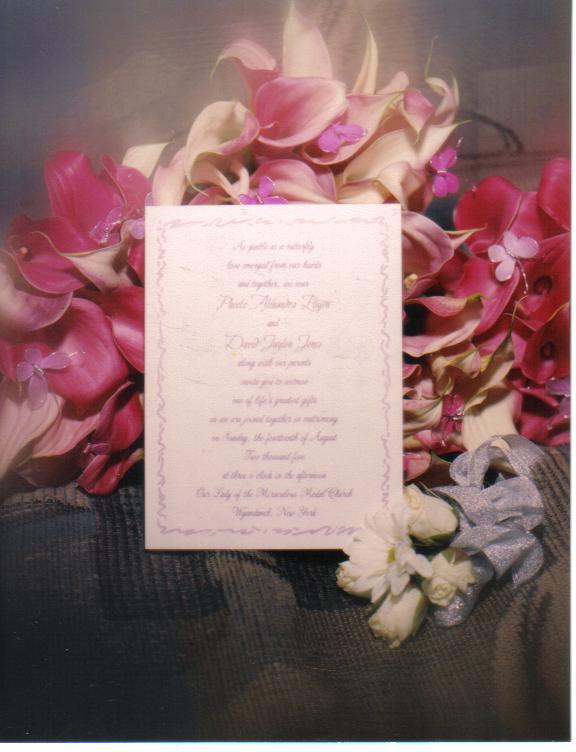 As gentle as a butterfly
love emerged from our hearts
and together, we now
Alexandra
and
David Taylor Jones
along with our parents
invite you to witness
one of life's greatest gifts
as we are joined together in matrimony
on Sunday, the fourteenth of August
Two thousand five
at three o'clock in the afternoon
Our Lady of the Miraculous Medal Church
Wyandanch, New York